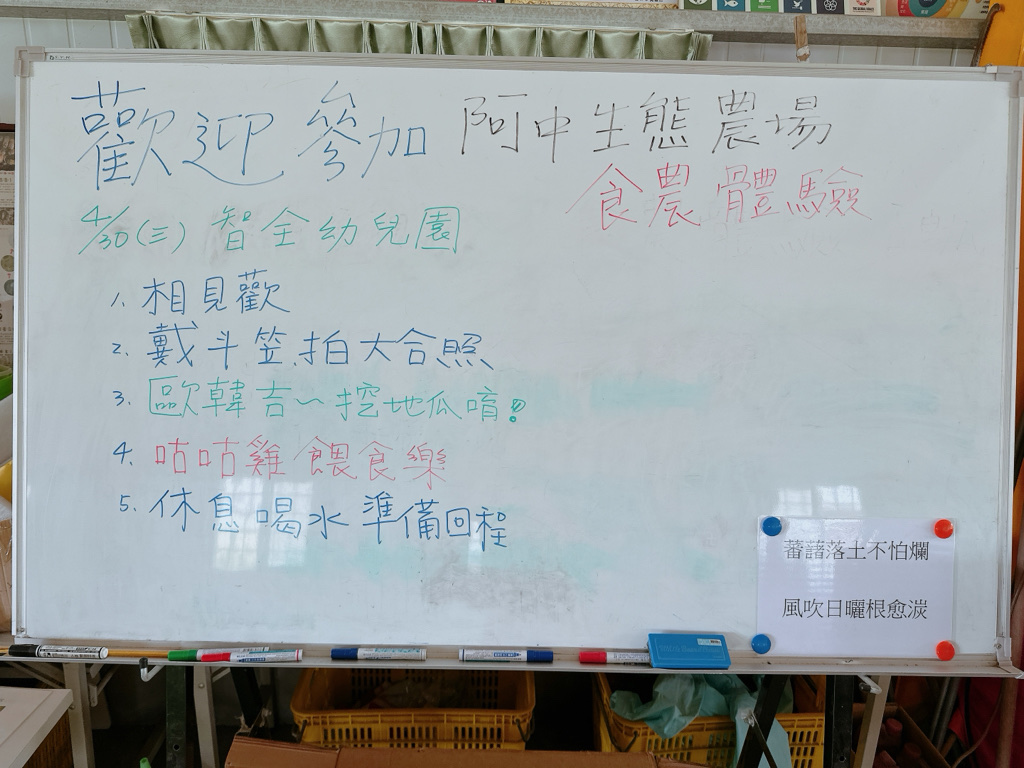 歡迎參加 阿中生態農場
食農體驗
4/30(三) 智全幼兒園
1. 相見歡
2. 戴斗笠.拍大合照
3. 歐韓吉~挖地瓜唷!
4. 咕咕雞餵食樂
5. 休息喝水準備回程
蕃藷落土不怕爛
風吹日曬根愈湠